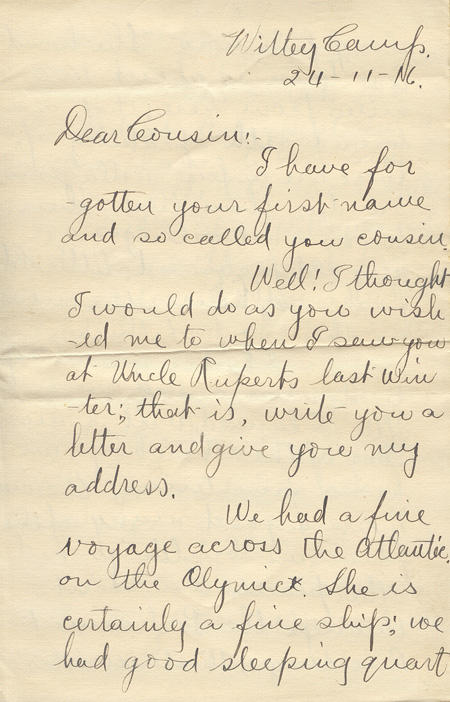 Wittey Camp.
24-11-16.
Dear Cousin!-
I have for
-gotten your first name
and so called you cousin.
Well! I thought
I would do as you wish
-ed me to when I saw you
at Uncle Ruperts last win
-ter; that is, write you a
letter and give you my
address.
We had a fine
voyage across the Atlantic.
on the Olymic. She is
certainly a fine ship; we
had good sleeping quart